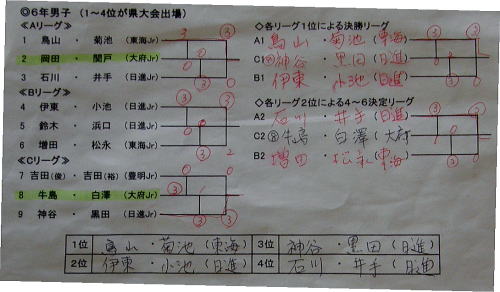 ◎6年男子(1~4位が県大会出場)
≪Aリーグ≫
1 鳥山 ・ 菊池 (東海Jr)
2 岡田 ・ 関戸 (大府Jr)
3 石川 ・ 井手 (日進Jr)
≪Bリーグ≫
4 伊東 ・ 小池 (日進Jr)
5 鈴木 ・ 浜口 (日進Jr)
6 増田 ・ 松永 (東海Jr)
≪Cリーグ≫
7 吉田(俊) ・ 吉田(裕) (豊明Jr)
8 牛島 ・ 白澤 (大府Jr)
9 神谷 ・ 黒田 (日進Jr)
◇各リーグ1位による決勝リーグ
A1 鳥山 ・ 菊池 (東海)
C1 神谷 ・ 黒田 (日進)
B1 伊東 ・ 小池 (日進)
◇各リーグ2位による4~6決定リーグ
A2 石川 ・ 井手 (日進)
C2 牛島 ・ 白澤 (大府)
B2 増田 ・ 松永 (東海)
1位 鳥山 ・ 菊池 (東海) 3位 神谷 ・ 黒田 (日進)
2位 伊東 ・ 小池 (日進) 4位 石川 ・ 井手 (日進)